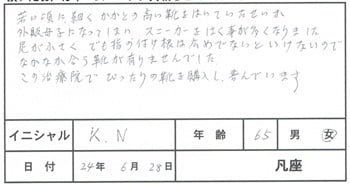 若い頃に細く かかとの高い靴をはいていたせいか
外反母子になってしまい スニーカーをはく事が多くなりました
足が小さく でも指の付け根は広めでないといけないので
なかなか合う靴が有りませんでした
この治療院でぴったりの靴を購入し、喜んでいます
イニシャル K.N 年齢 65 男 女
日付 24年 6月 28日 凡座